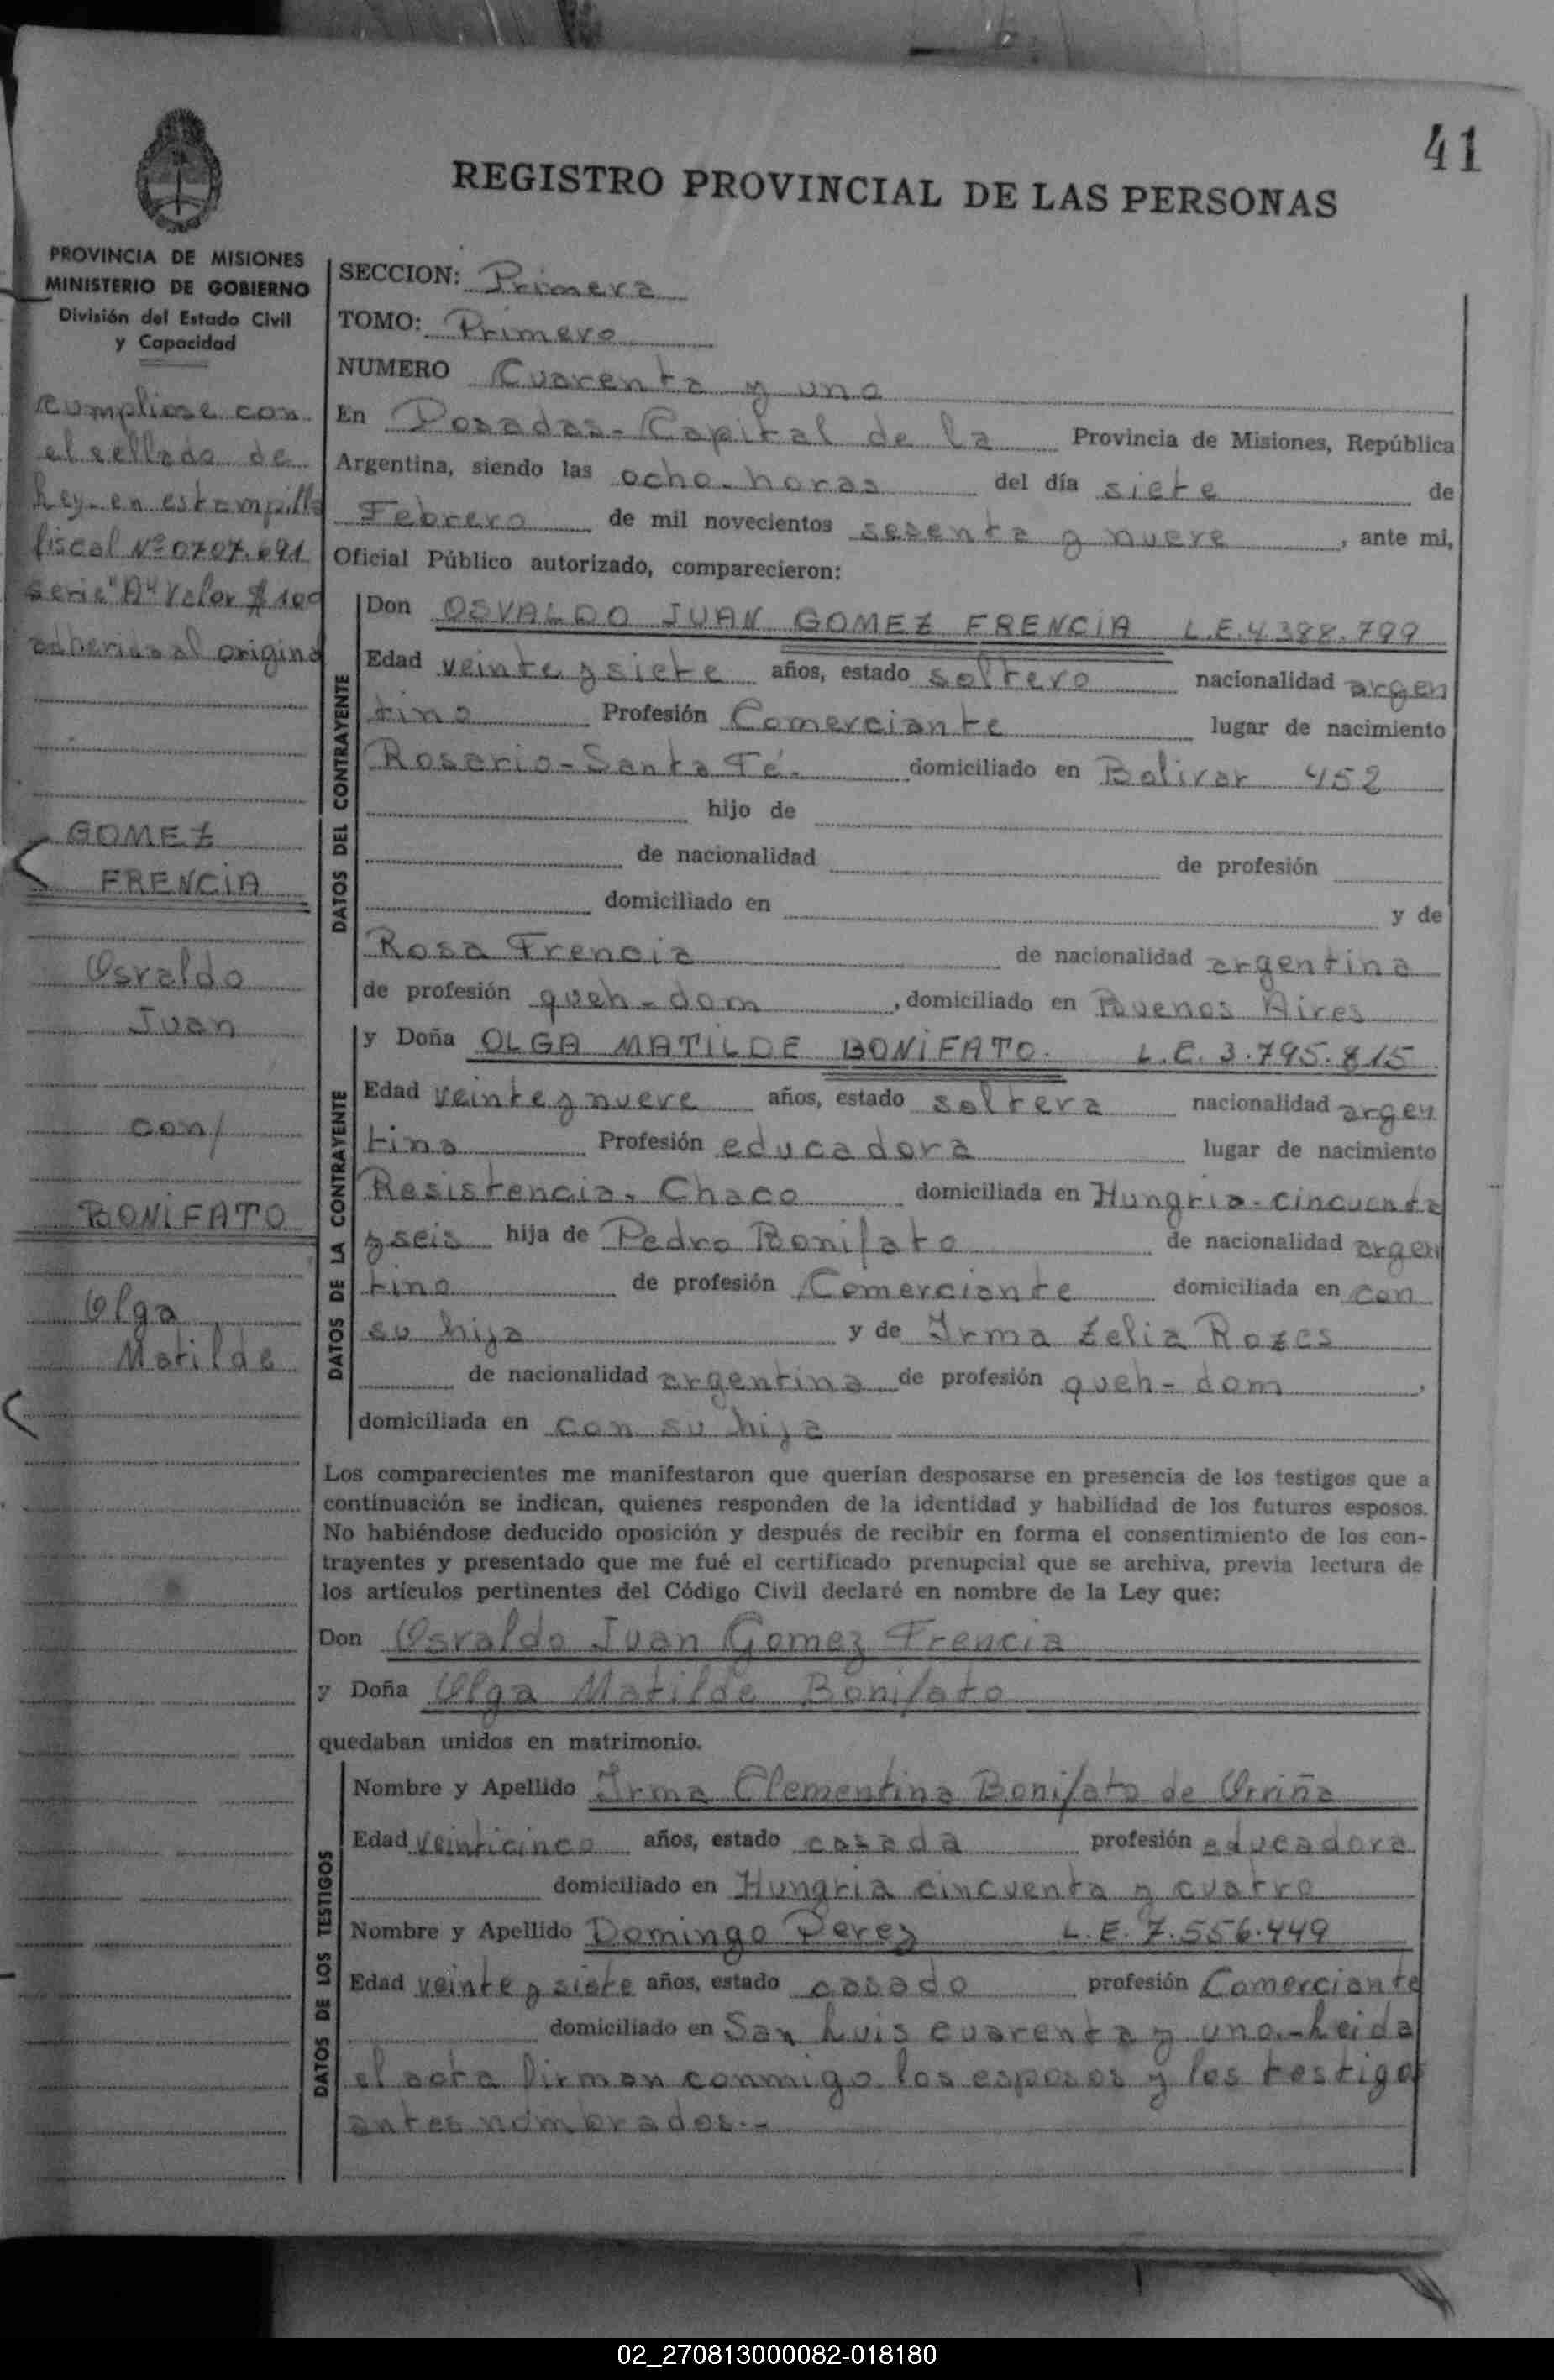 41
REGISTRO PROVINCIAL DE LAS PERSONAS
PROVINCIA DE MISIONES
MINISTERIO DE GOBIERNO
División del Estado Civil
y Capacidad
Cumpliose con
el sellado de
Ley en estampilla
fiscal Nº 0707.691
serie "A" Valor $ 100
adherida al original
GOMEZ
FRENCIA
Osvaldo
Juan
con/
BONIFATO
Olga
Matilde
SECCION: Primera
TOMO: Primero
NUMERO Cuarenta y uno
En Posadas - Capital de la Provincia de Misiones, República
Argentina, siendo las ocho horas del día siete de
Febrero de mil novecientos sesenta y nueve, ante mi,
Oficial Público autorizado, comparecieron:
DATOS DEL CONTRAYENTE
Don OSVALDO JUAN GOMEZ FRENCIA L.E. 4.388.799
Edad veinte y siete años, estado soltero nacionalidad argen
tino Profesión Comerciante lugar de nacimiento
Rosario - Santa Fé. domiciliado en Bolivar 452
hijo de
de nacionalidad de profesión
domiciliado en y de
Rosa Frencia de nacionalidad argentina
de profesión queh-dom, domiciliado en Buenos Aires
DATOS DE LA CONTRAYENTE
y Doña OLGA MATILDE BONIFATO. L.C. 3.795.815
Edad veinte y nueve años, estado soltera nacionalidad argen
tina Profesión educadora lugar de nacimiento
Resistencia. Chaco domiciliada en Hungria - cincuenta
y seis hija de Pedro Bonifato de nacionalidad argen
tino de profesión Comerciante domiciliada en con
su hija y de Irma Zelia Rozes
de nacionalidad argentina de profesión queh-dom,
domiciliada en con su hija
Los comparecientes me manifestaron que querían desposarse en presencia de los testigos que a
continuación se indican, quienes responden de la identidad y habilidad de los futuros esposos.
No habiéndose deducido oposición y después de recibir en forma el consentimiento de los con-
trayentes y presentado que me fué el certificado prenupcial que se archiva, previa lectura de
los artículos pertinentes del Código Civil declaré en nombre de la Ley que:
Don Osvaldo Juan Gomez Frencia
y Doña Olga Matilde Bonifato
quedaban unidos en matrimonio.
DATOS DE LOS TESTIGOS
Nombre y Apellido Irma Clementina Bonifato de
Edad veinticinco años, estado casada profesión educadora
domiciliado en Hungria cincuenta y cuatro
Nombre y Apellido Domingo Perez L.E. 7.556.449
Edad veinte y siete años, estado casado profesión Comerciante
domiciliado en San Luis cuarenta y uno.-Leida
el acta firman conmigo los esposos y los testigos
antes nombrados.-
02_270813000082-018180